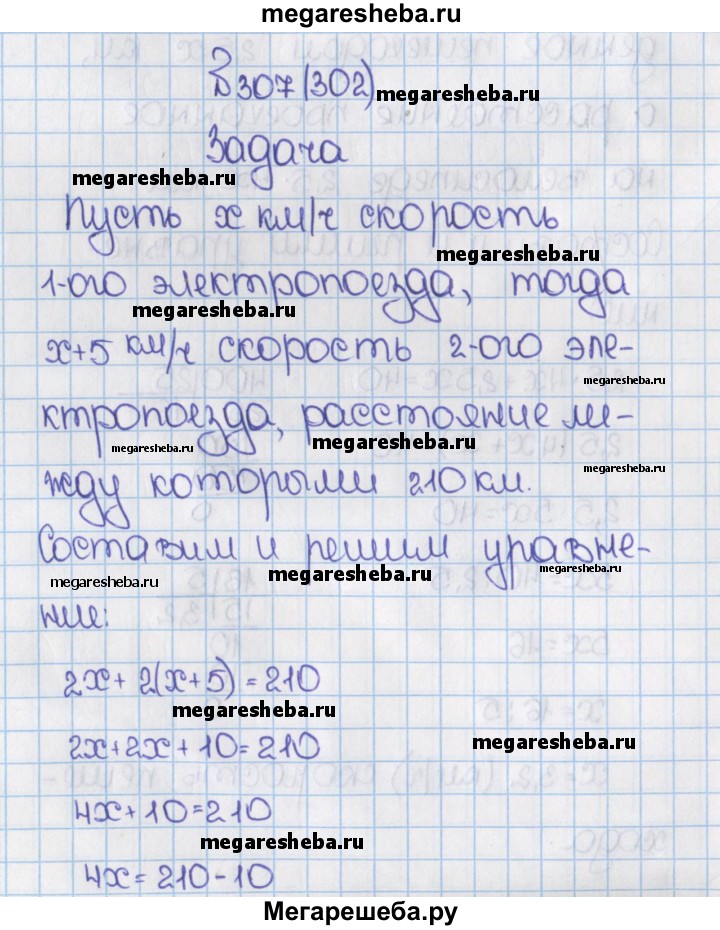 megaresheba.ru
№307 (302)
megaresheba.ru
Задача
megaresheba.ru
Пусть x км/ч скорость
megaresheba.ru
1-ого электропоезда, тогда
megaresheba.ru
x+5 км/ч скорость 2-ого эле-
megaresheba.ru
ктропоезда, расстояние ме-
megaresheba.ru megaresheba.ru
megaresheba.ru
жду которыми 210 км.
Составим и решим уравне-
megaresheba.ru megaresheba.ru megaresheba.ru
ние:
2x+ 2(x+5) = 210
megaresheba.ru
2x+2x+10=210
megaresheba.ru
4x+10=210
megaresheba.ru
4x=210-10
Мегарешеба.ру